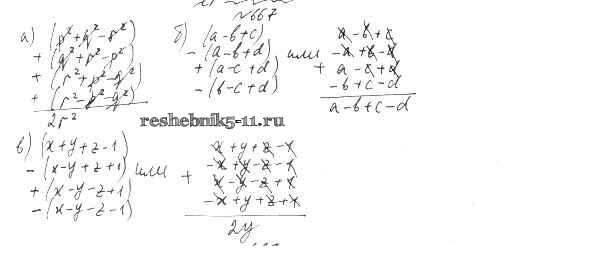 №667
а) (p²+q²-r²)
+ (q²+r²-p²)
+ (r²+p²-q²)
+ (r²-p²-q²)
2r²
б) (a-b+c)
- (a-b+d)
+ (a-c+d)
- (b-c+d)
или
+
a - b + c
-a + b - d
a - c + d
-b + c - d
a-b+c-d
reshebnik5-11.ru
в) (x+y+z-1)
- (x-y+z+1)
+ (x-y-z+1)
- (x-y-z-1)
или
+
x + y + z - 1
-x + y - z - 1
x - y - z + 1
-x + y + z + 1
2y